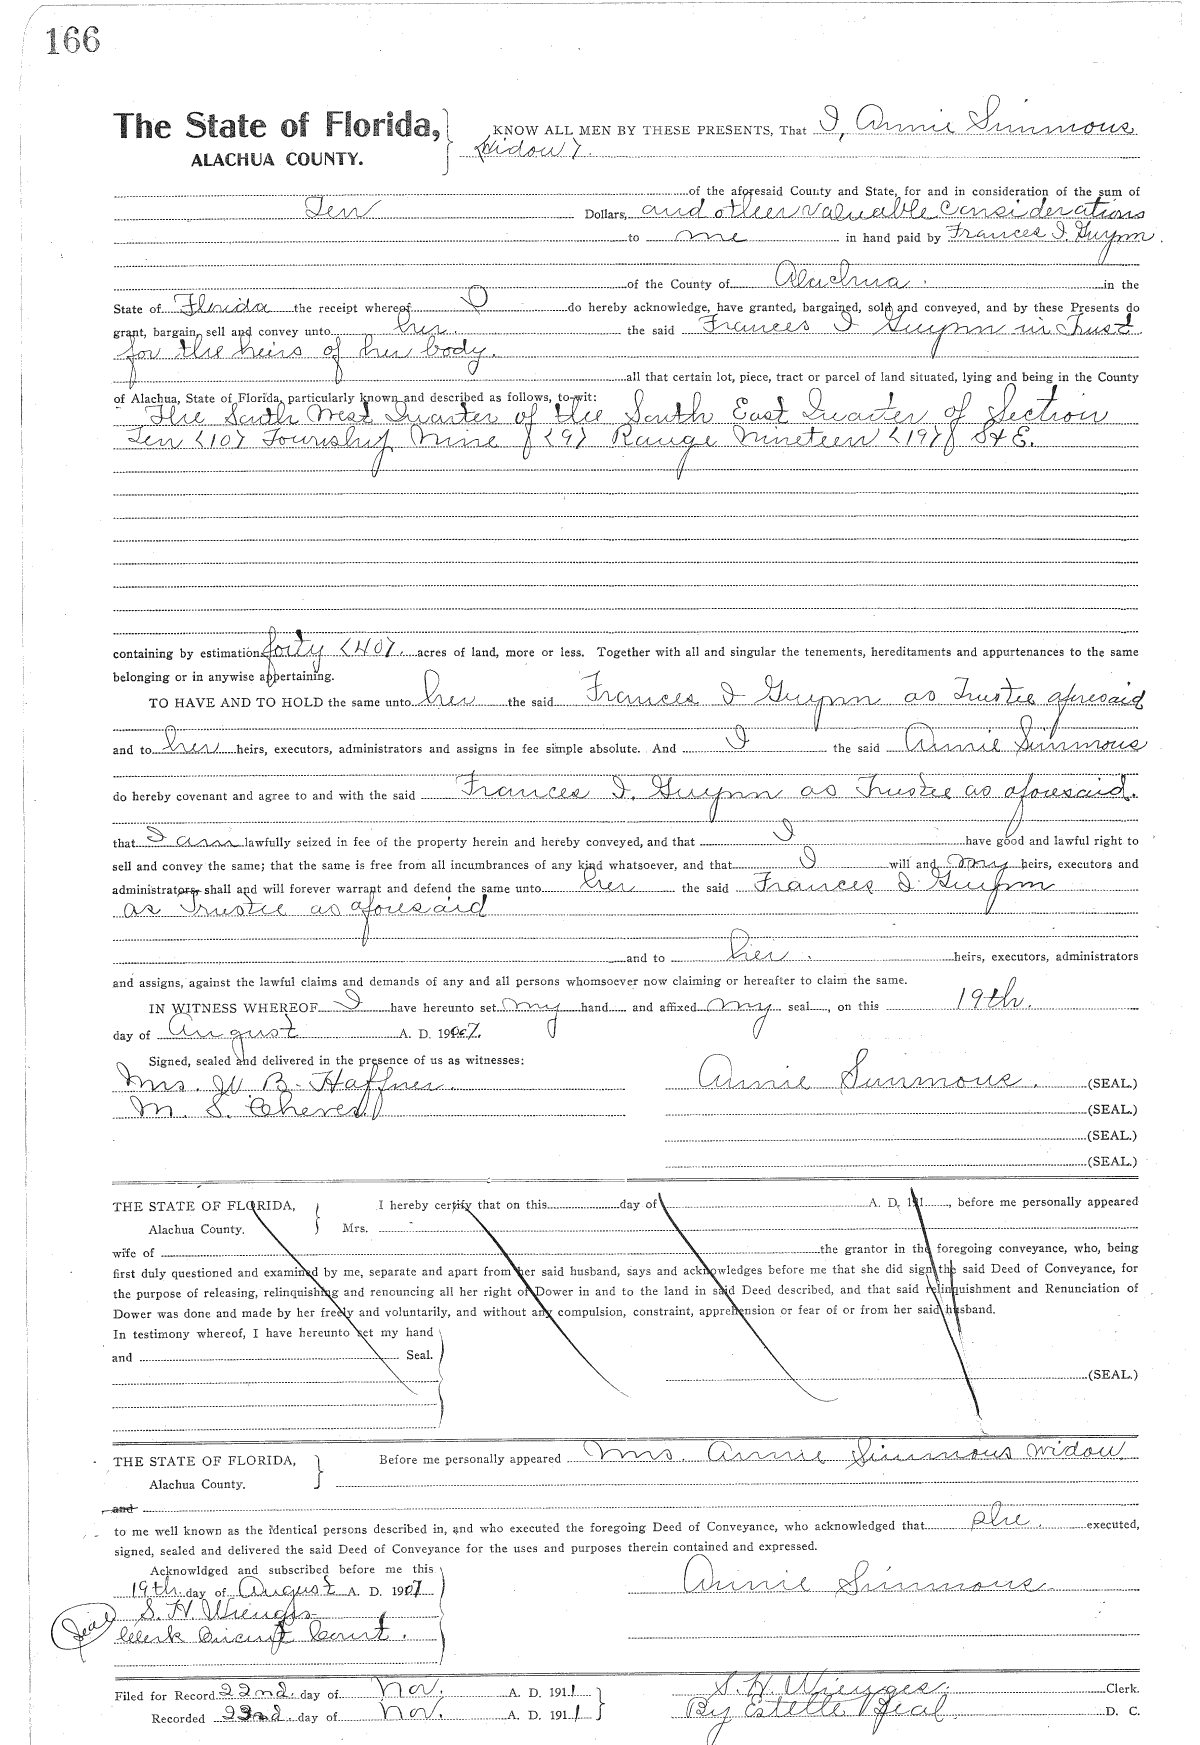 166
The State of Florida, KNOW ALL MEN BY THESE PRESENTS, That I, Annie Simmons
ALACHUA COUNTY. (widow).
of the aforesaid County and State, for and in consideration of the sum of
Ten Dollars, and other valuable considerations
to me in hand paid by Frances I. Guynn
of the County of Alachua. in the
State of Florida the receipt whereof I do hereby acknowledge, have granted, bargained, sold and conveyed, and by these Presents do
grant, bargain, sell and convey unto her the said Frances I Guynn in Trust
for the heirs of her body.
all that certain lot, piece, tract or parcel of land situated, lying and being in the County
of Alachua, State of Florida, particularly known and described as follows, to-wit:
The South West Quarter of the South East Quarter of Section
Ten (10) Township Nine (9) Range Nineteen (19) S & E.
containing by estimation forty (40) acres of land, more or less. Together with all and singular the tenements, hereditaments and appurtenances to the same
belonging or in anywise appertaining.
TO HAVE AND TO HOLD the same unto her the said Frances I Guynn as Trustee aforesaid
and to her heirs, executors, administrators and assigns in fee simple absolute. And I the said Annie Simmons
do hereby covenant and agree to and with the said Frances I. Guynn as Trustee as aforesaid.
that I am lawfully seized in fee of the property herein and hereby conveyed, and that I have good and lawful right to
sell and convey the same; that the same is free from all incumbrances of any kind whatsoever, and that I will and my heirs, executors and
administrators shall and will forever warrant and defend the same unto her the said Frances I Guynn
as Trustee as aforesaid
and to her. heirs, executors, administrators
and assigns, against the lawful claims and demands of any and all persons whomsoever now claiming or hereafter to claim the same.
IN WITNESS WHEREOF I have hereunto set my hand and affixed my seal, on this 19th.
day of August A. D. 1907.
Signed, sealed and delivered in the presence of us as witnesses:
Mrs. W B. Haffner. Annie Simmons. (SEAL.)
M. S. Cheves (SEAL.)
(SEAL.)
(SEAL.)
THE STATE OF FLORIDA, I hereby certify that on this day of A. D. 191, before me personally appeared
Alachua County. Mrs.
wife of the grantor in the foregoing conveyance, who, being
first duly questioned and examined by me, separate and apart from her said husband, says and acknowledges before me that she did sign the said Deed of Conveyance, for
the purpose of releasing, relinquishing and renouncing all her right of Dower in and to the land in said Deed described, and that said relinquishment and Renunciation of
Dower was done and made by her freely and voluntarily, and without any compulsion, constraint, apprehension or fear of or from her said husband.
In testimony whereof, I have hereunto set my hand
and Seal.
(SEAL.)
THE STATE OF FLORIDA, Before me personally appeared Mrs. Annie Simmons widow
Alachua County.
and
to me well known as the identical persons described in, and who executed the foregoing Deed of Conveyance, who acknowledged that she. executed,
signed, sealed and delivered the said Deed of Conveyance for the uses and purposes therein contained and expressed.
Acknowldged and subscribed before me this
19th day of August A. D. 1907 Annie Simmons
Seal S. H. Wienges
Clerk Circuit Court.
Filed for Record 22nd. day of Nov. A. D. 1911 S. H. Wienges. Clerk.
Recorded 23nd. day of Nov. A. D. 1911 By Estelle Beal D. C.